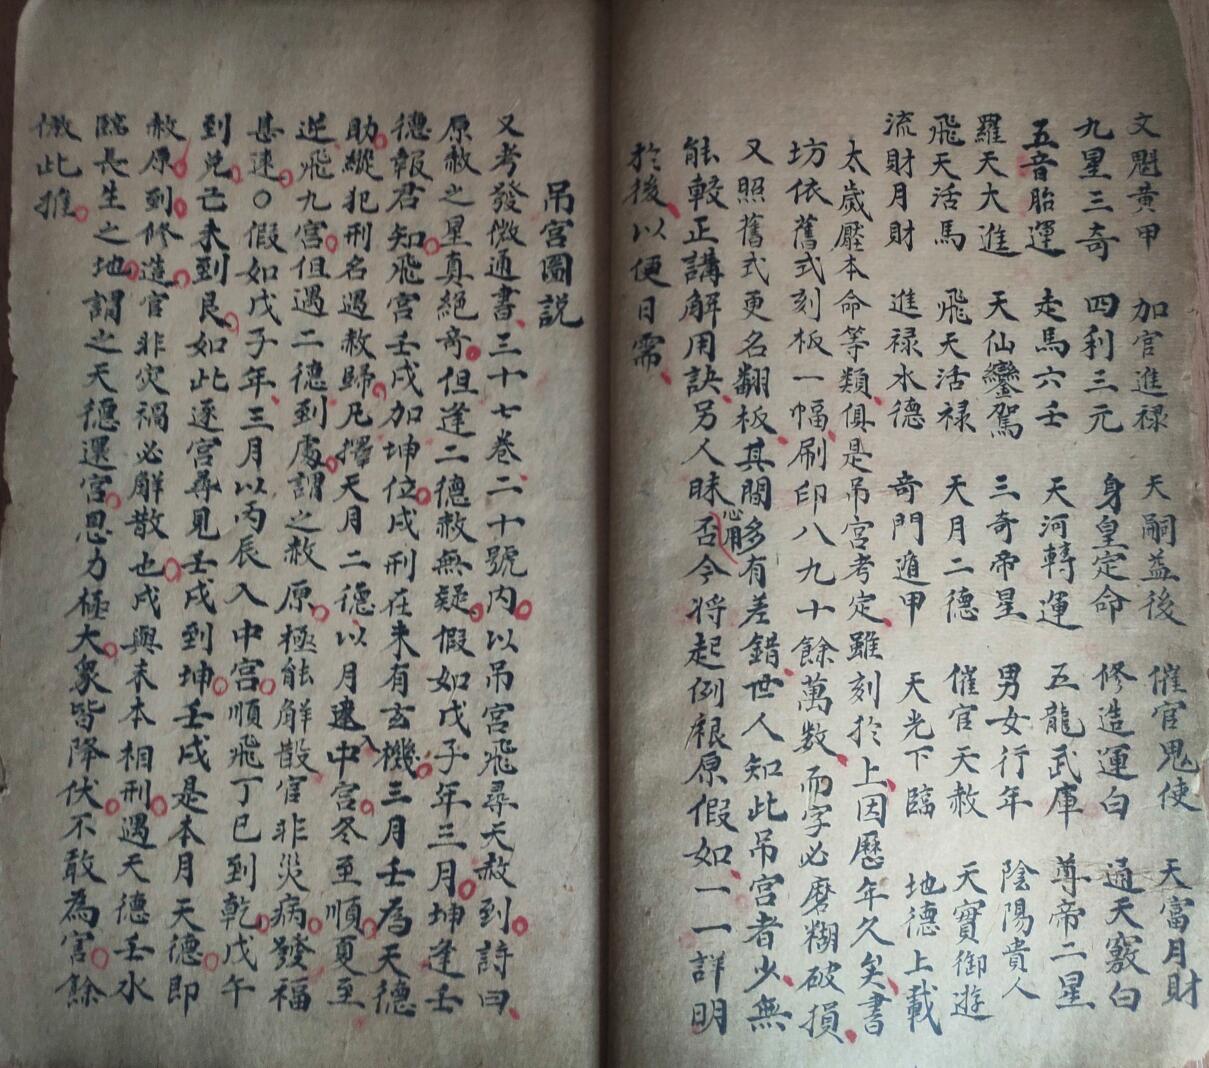 文魁黃甲　加官進禄　天嗣益後　催官鬼使　天富月財
九星三奇　四利三元　身皇定命　修造運白　通天竅白
五音胎運　走馬六壬　天河轉運　五龍武庫　尊帝二星
羅天大進　天仙鑾駕　三奇帝星　男女行年　陰陽貴人
飛天活馬　飛天活禄　天月二德　催官天赦　天寶御遊
流財月財　進禄水德　奇門遁甲　天光下臨　地德上載
太歲壓本命等類俱是吊宮考定雖刻於上因歷年久矣書
坊依舊式刻板一幅刷印八九十餘萬數而字必磨糊破損
又照舊式更名翻板其間多有差錯世人知此吊宮者少無
能較正講解用訣另人昧心用否今將起例根原假如一一詳明
於後以便日需
吊宮圖説
又考發微通書三十七卷二十號内以吊宮飛尋天赦到詩曰
原赦之星真絕奇但逢二德赦無疑假如戊子年三月坤逢壬
德報君知飛宮壬戌加坤位戌刑在未有玄機三月壬為天德
助縱犯刑名遇赦歸凡擇天月二德以月建入中宮冬至順夏至
逆飛九宮但遇二德到處謂之赦原極能解散官非災病發福
甚速〇假如戊子年三月以丙辰入中宮順飛丁巳到乾戊午
到兌己未到艮如此逐宮尋見壬戌到坤壬戌是本月天德即
赦原到修造官非灾禍必解散也戌與未本相刑遇天德壬水
臨長生之地謂之天德還宮恩力極大衆皆降伏不敢為害餘
倣此推